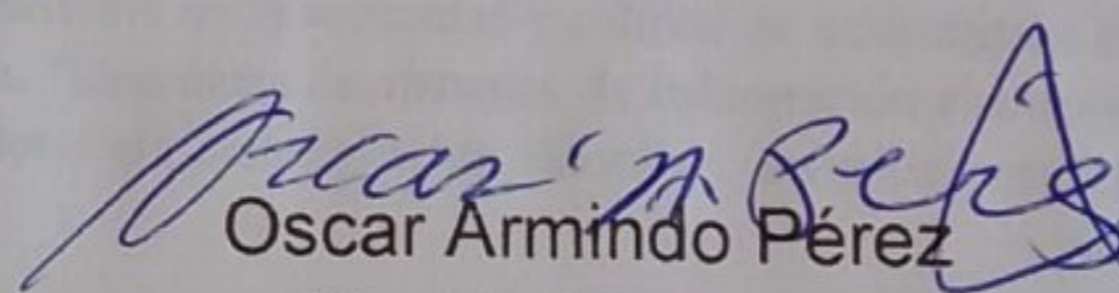 Oscar A Perez
Oscar Armindo Pérez